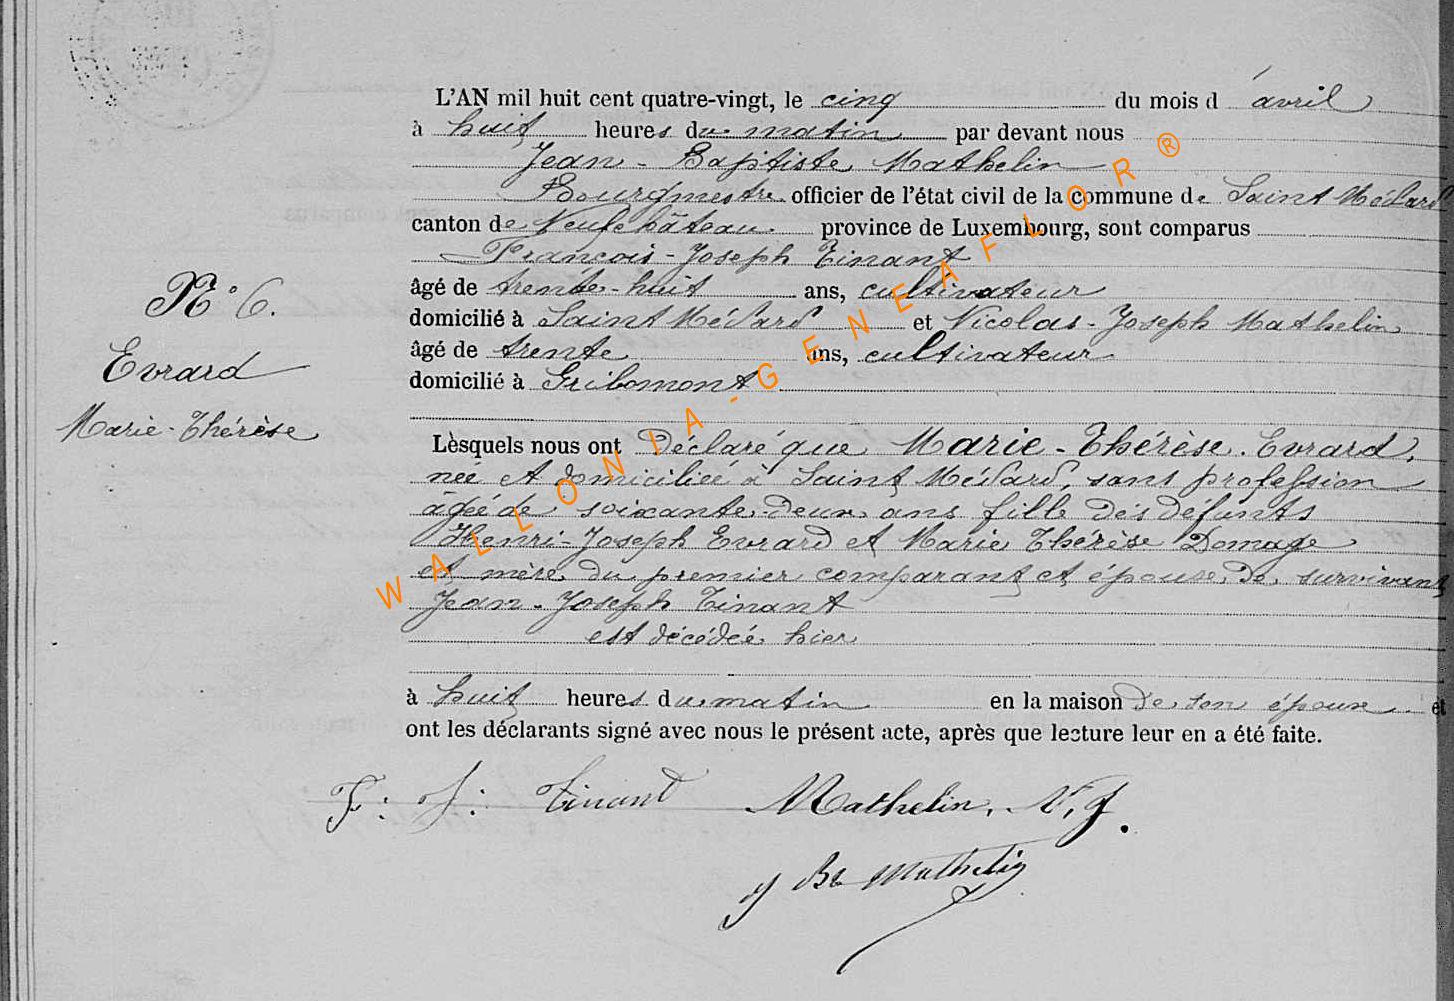 L'AN mil huit cent quatre-vingt, le cinq du mois d'avril
à huit heures du matin par devant nous
Jean-Baptiste Mathelin
Bourgmestre officier de l'état civil de la commune de Saint Médard
canton de Neufchâteau province de Luxembourg, sont comparus
François-Joseph Tinant
âgé de trente-huit ans, cultivateur
domicilié à Saint Médard et Nicolas-Joseph Mathelin
âgé de trente ans, cultivateur
domicilié à Gribomont
N° 6.
Evrard
Marie-Thérèse
Lèsquels nous ont Déclaré que Marie-Thérèse Evrard,
née et domiciliée à Saint Médard, sans profession
âgée de soixante-deux ans fille des défunts
Henri-Joseph Evrard et Marie Thérèse Domage
et mère du premier comparant et épouse de survivant
Jean-Joseph Tinant
est décédée hier
à huit heures du matin en la maison de son époux et
ont les déclarants signé avec nous le présent acte, après que lecture leur en a été faite.
F: J: Tinant Mathelin, N, J.
J Bte Mathelin
WALLONIA-GENEAFLOR®